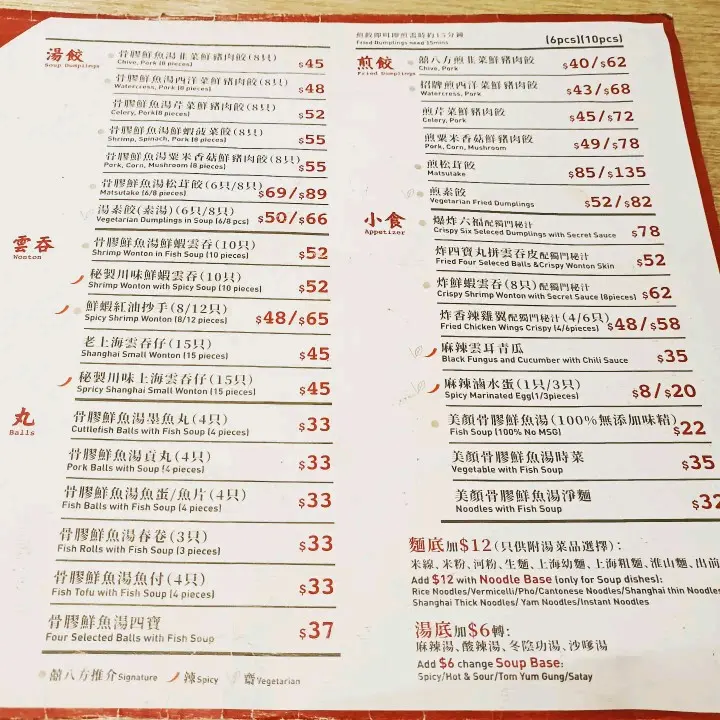 湯餃
Soup Dumplings
骨膠鮮魚湯韭菜鮮豬肉餃(8只) $45
Chive, Pork (8 pieces)
骨膠鮮魚湯西洋菜鮮豬肉餃(8只) $48
Watercress, Pork (8 pieces)
骨膠鮮魚湯芹菜鮮豬肉餃(8只) $52
Celery, Pork(8 pieces)
骨膠鮮魚湯鮮蝦菠菜餃(8只) $55
Shrimp, Spinach, Pork (8 pieces)
骨膠鮮魚湯粟米香菇鮮豬肉餃(8只) $55
Pork, Corn, Mushroom (8 pieces)
骨膠鮮魚湯松茸餃(6只/8只) $69/$89
Matsutake (6/8 pieces)
湯素餃(素湯)(6只/8只) $50/$66
Vegetarian Dumplings in Soup (6/8 pcs)
雲吞
Wonton
骨膠鮮魚湯鮮蝦雲吞(10只) $52
Shrimp Wonton in Fish Soup (10 pieces)
秘製川味鮮蝦雲吞(10只) $52
Shrimp Wonton with Spicy Soup (10 pieces)
鮮蝦紅油抄手(8/12只) $48/$65
Spicy Shrimp Wonton (8/12 pieces)
老上海雲吞仔(15只) $45
Shanghai Small Wonton (15 pieces)
秘製川味上海雲吞仔(15只) $45
Spricy Shanghai Small Wonton (15 pieces)
丸
Balls
骨膠鮮魚湯墨魚丸(4只) $33
Cuttlefish Balls with Fish Soup (4 pieces)
骨膠鮮魚湯貢丸(4只) $33
Pork Balls with Soup (4 pieces)
骨膠鮮魚湯魚蛋/魚片(4只) $33
Fish Balls with Fish Soup (4 pieces)
骨膠鮮魚湯春卷(3只) $33
Fish Rolls with Fish Soup (3 pieces)
骨膠鮮魚湯魚付(4只) $33
Fish Tofu with Fish Soup (4 pieces)
骨膠鮮魚湯四寶 $37
Four Selected Balls with Fish Soup
囍八方推介Signature 辣Spicy 齋Vegetarian
煎餃即叫即煎需時約15分鐘
Fried Dumplings need 15mins
(6pcs)(10pcs)
煎餃
Fried Dumplings
囍八方煎韭菜鮮豬肉餃 $40/$62
Chive, Pork
招牌煎西洋菜鮮豬肉餃 $43/$68
Watercress, Pork
煎芹菜鮮豬肉餃 $45/$72
Celery, Pork
煎粟米香菇鮮豬肉餃 $49/$78
Pork, Corn, Mushroom
煎松茸餃 $85/$135
Matsutake
煎素餃 $52/$82
Vegetarian Fried Dumplings
小食
Appetizer
爆炸六福配獨門秘汁 $78
Crispy Six Seleced Dumplings with Secret Sauce
炸四寶丸拼雲吞皮配獨門秘汁 $52
Fried Four Seleced Balls &Crispy Wonton Skin
炸鮮蝦雲吞(8只)配獨門秘汁 $62
Crispy Shrimp Wonton with Secret Sauce (8pieces)
炸香辣雞翼配獨門秘汁(4/6只) $48/$58
Fried Chicken Wings Crispy (4/6pieces)
麻辣雲耳青瓜 $35
Black Fungus and Cucumber with Chili Sauce
麻辣滷水蛋(1只/3只) $8/$20
Spicy Marinated Egg(1/3pieces)
美顏骨膠鮮魚湯(100%無添加味精) $22
Fish Soup (100% No MSG)
美顏骨膠鮮魚湯時菜 $35
Vegetable with Fish Soup
美顏骨膠鮮魚湯淨麵 $32
Noodles with Fish Soup
麵底加$12(只供附湯菜品選擇):
米線、米粉、河粉、生麵、上海幼麵、上海粗麵、淮山麵、出前
Add $12 with Noodle Base (only for Soup dishes):
Rice Noodles/Vermicelli/Pho/Cantonese Noodles/Shanghai thin Noodles
Shanghai Thick Noodles/ Yam Noodles/Instant Noodles
湯底加$6轉:
麻辣湯、酸辣湯、冬陰功湯、沙嗲湯
Add $6 change Soup Base:
Spicy/Hot & Sour/Tom Yum Gung/Satay